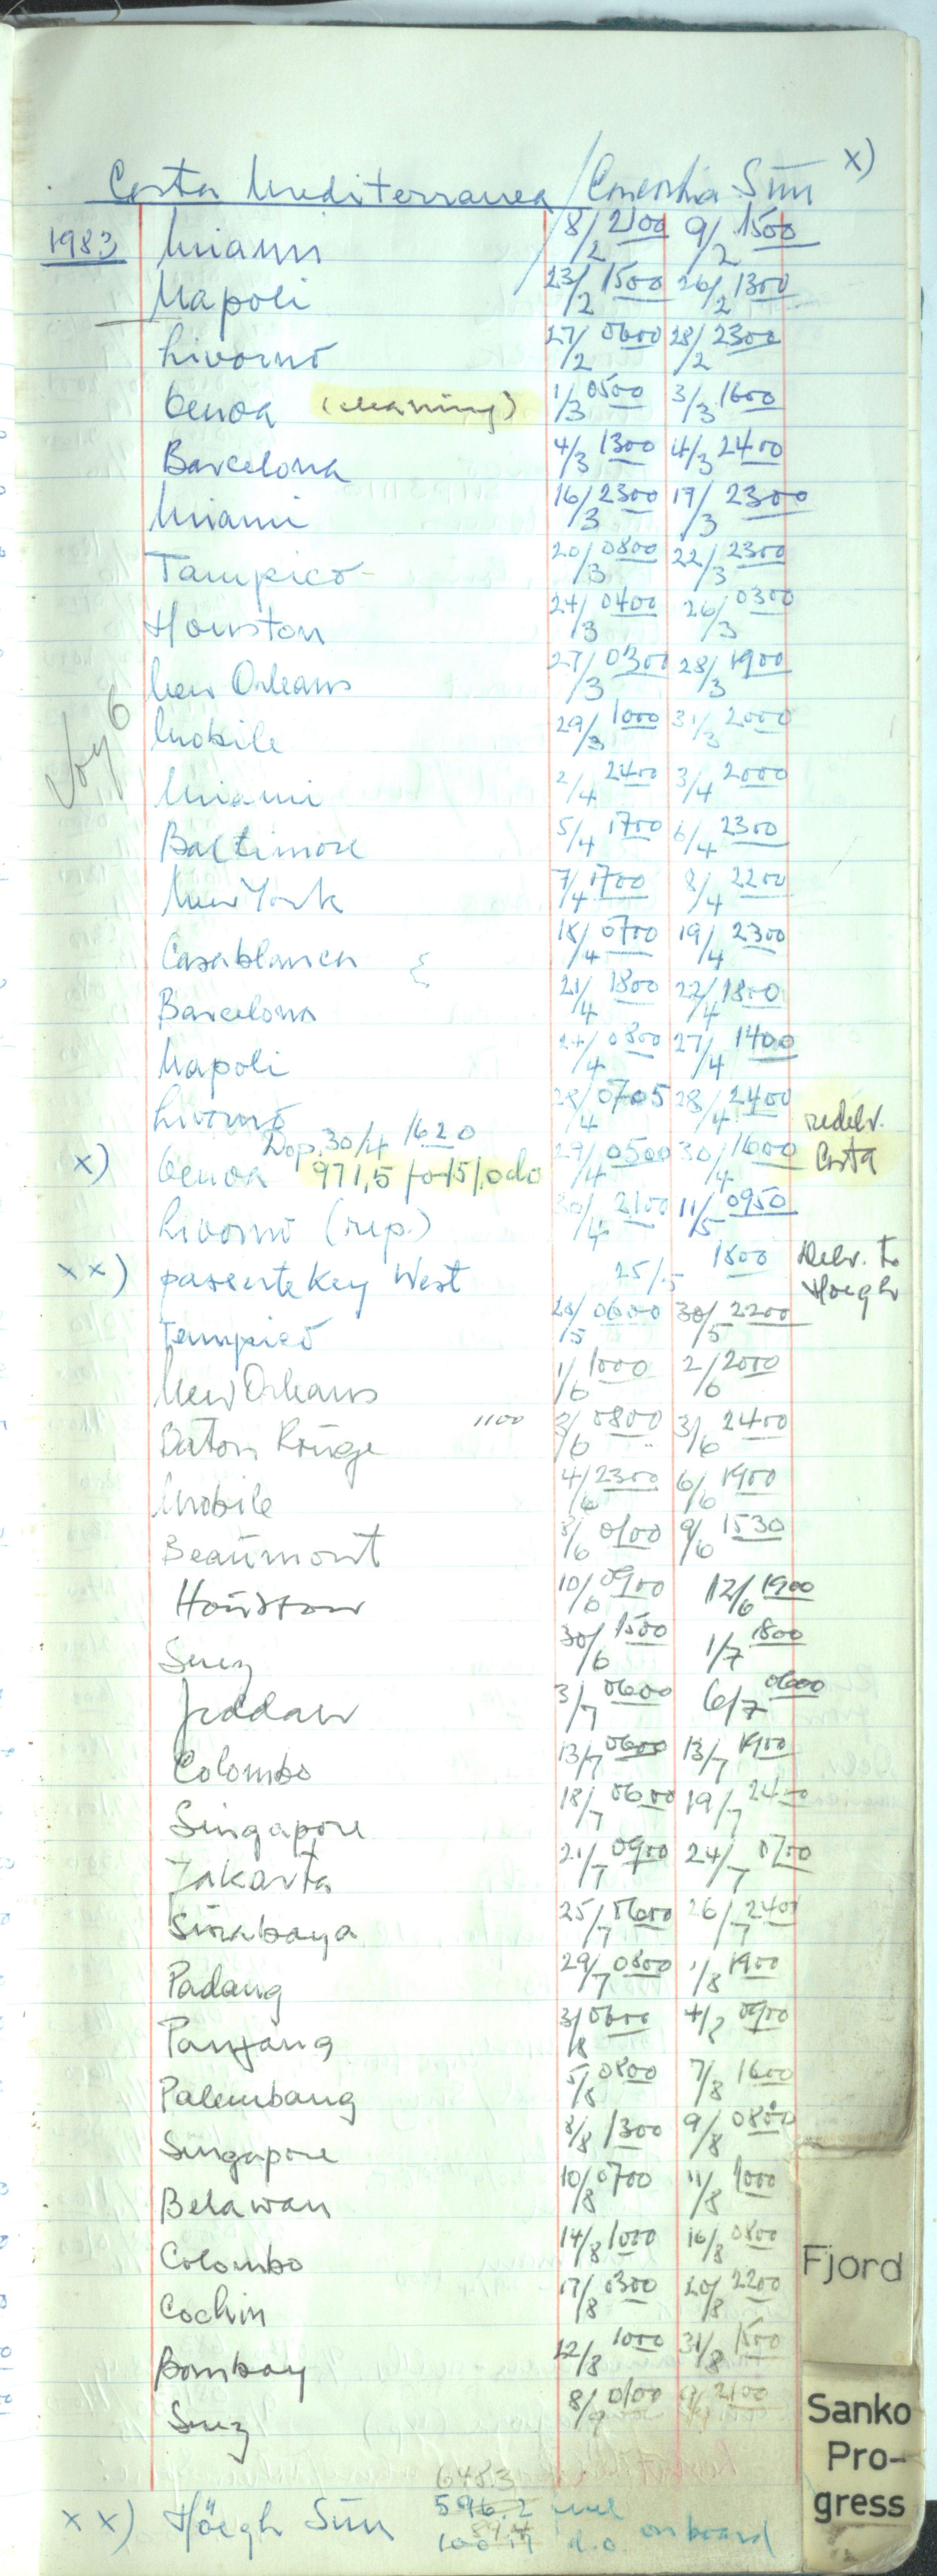 Costa Mediterranea / Concordia Sun x)
1983 Miami 8/2 2100 9/2 1500
Napoli 23/2 1500 26/2 1300
Livorno 27/2 0600 28/2 2300
Genoa (cleaning) 1/3 0500 3/3 1600
Barcelona 4/3 1300 4/3 2400
Miami 16/3 2300 17/3 2300
Tampico 20/3 0800 22/3 2300
Houston 24/3 0400 26/3 0300
New Orleans 27/3 0300 28/3 1900
Voy 6
Mobile 29/3 1000 31/3 2000
Miami 2/4 2400 3/4 2000
Baltimore 5/4 1700 6/4 2300
New York 7/4 1700 8/4 2200
Casablanca 18/4 0700 19/4 2300
Barcelona 21/4 1800 22/4 1800
Napoli 24/4 0800 27/4 1400
Livorno 28/4 0705 28/4 2400
Dop. 30/4 1620 redelv.
x) Genoa 971,5 fo 151,0 do 29/4 0500 30/4 1600 Costa
Livorno (rep.) 30/4 2100 11/5 0950
xx) passerte Key West 25/5 1800 Delv. to Hoegh
Tampico 28/5 0600 30/5 2200
New Orleans 1/6 1000 2/6 2000
Baton Rouge 1100 3/6 0800 3/6 2400
Mobile 4/6 2300 6/6 1900
Beaumont 8/6 0100 9/6 1530
Houston 10/6 0900 12/6 1900
Suez 30/6 1500 1/7 1800
Jeddah 3/7 0600 6/7 0600
Colombo 13/7 0600 13/7 1900
Singapore 18/7 0600 19/7 2400
Jakarta 21/7 0900 24/7 0700
Surabaya 25/7 0600 26/7 2400
Padang 29/7 0800 1/8 1900
Panjang 3/8 0600 4/8 0900
Palembang 5/8 0800 7/8 1600
Singapore 8/8 1300 9/8 0800
Belawan 10/8 0700 11/8 1000
Colombo 14/8 1000 16/8 0800
Fjord
Cochin 17/8 0300 20/8 2200
Bombay 22/8 1000 31/8 1500
Suez 8/9 0100 9/9 2100
Sanko
Pro-
gress
648.3
xx) Höegh Sun 596.2 fuel
d.o. onboard